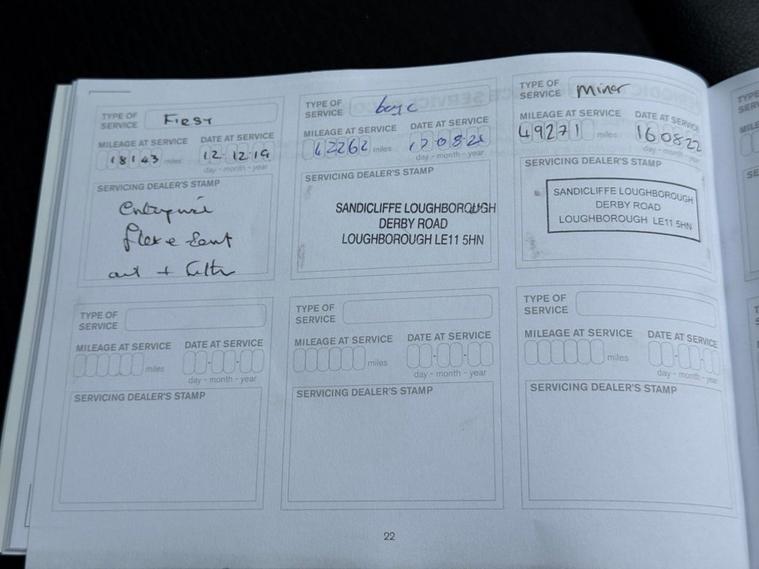 TYPE OF SERVICE First
MILEAGE AT SERVICE DATE AT SERVICE
18143 miles 12 12 19
day - month - year
SERVICING DEALER'S STAMP
oil + filter
TYPE OF SERVICE
MILEAGE AT SERVICE DATE AT SERVICE
42262 miles 17 08 21
day - month - year
SERVICING DEALER'S STAMP
SANDICLIFFE LOUGHBOROUGH
DERBY ROAD
LOUGHBOROUGH LE11 5HN
TYPE OF SERVICE minor
MILEAGE AT SERVICE DATE AT SERVICE
49271 miles 16 08 22
day - month - year
SERVICING DEALER'S STAMP
SANDICLIFFE LOUGHBOROUGH
DERBY ROAD
LOUGHBOROUGH LE11 5HN
TYPE OF SERVICE
MILEAGE AT SERVICE DATE AT SERVICE
miles
day - month - year
SERVICING DEALER'S STAMP
TYPE OF SERVICE
MILEAGE AT SERVICE DATE AT SERVICE
miles
day - month - year
SERVICING DEALER'S STAMP
TYPE OF SERVICE
MILEAGE AT SERVICE DATE AT SERVICE
miles
day - month - year
SERVICING DEALER'S STAMP
22